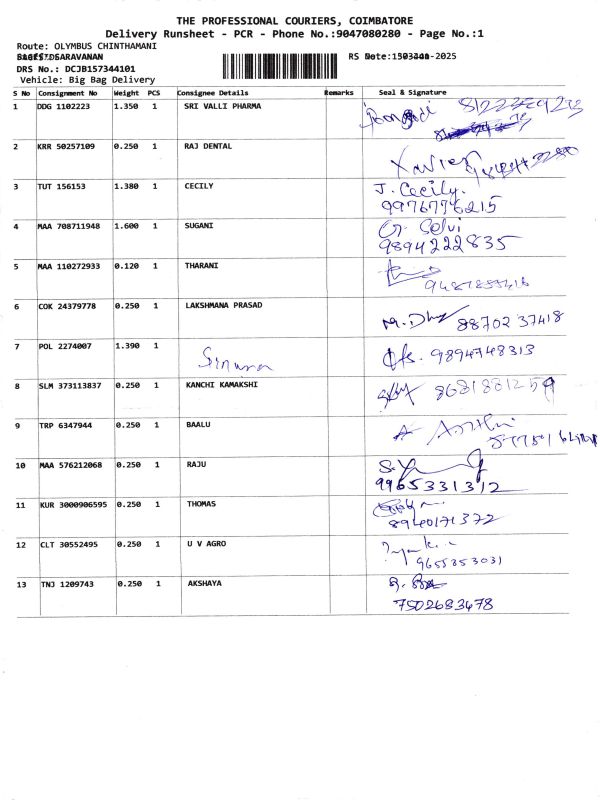 THE PROFESSIONAL COURIERS, COIMBATORE
Delivery Runsheet - PCR - Phone No.:9047080280 - Page No.:1
Route: OLYMBUS CHINTHAMANI
DRS No.: DCJB157344101
Vehicle: Big Bag Delivery
S No Consignment No Weight PCS Consignee Details Remarks Seal & Signature
1 DDG 1102223 1.350 1 SRI VALLI PHARMA
2 KRR 50257109 0.250 1 RAJ DENTAL Xavier
3 TUT 156153 1.380 1 CECILY J. Cecily.
9976776215
4 MAA 708711948 1.600 1 SUGANI G. Selvi
9894222835
5 MAA 110272933 0.120 1 THARANI
6 COK 24379778 0.250 1 LAKSHMANA PRASAD 88702 37418
7 POL 2274007 1.390 1 9894748313
8 SLM 373113837 0.250 1 KANCHI KAMAKSHI
9 TRP 6347944 0.250 1 BAALU
10 MAA 576212068 0.250 1 RAJU
9965331312
11 KUR 3000906595 0.250 1 THOMAS
8940171372
12 CLT 30552495 0.250 1 U V AGRO
9655353031
13 TNJ 1209743 0.250 1 AKSHAYA
7502683478